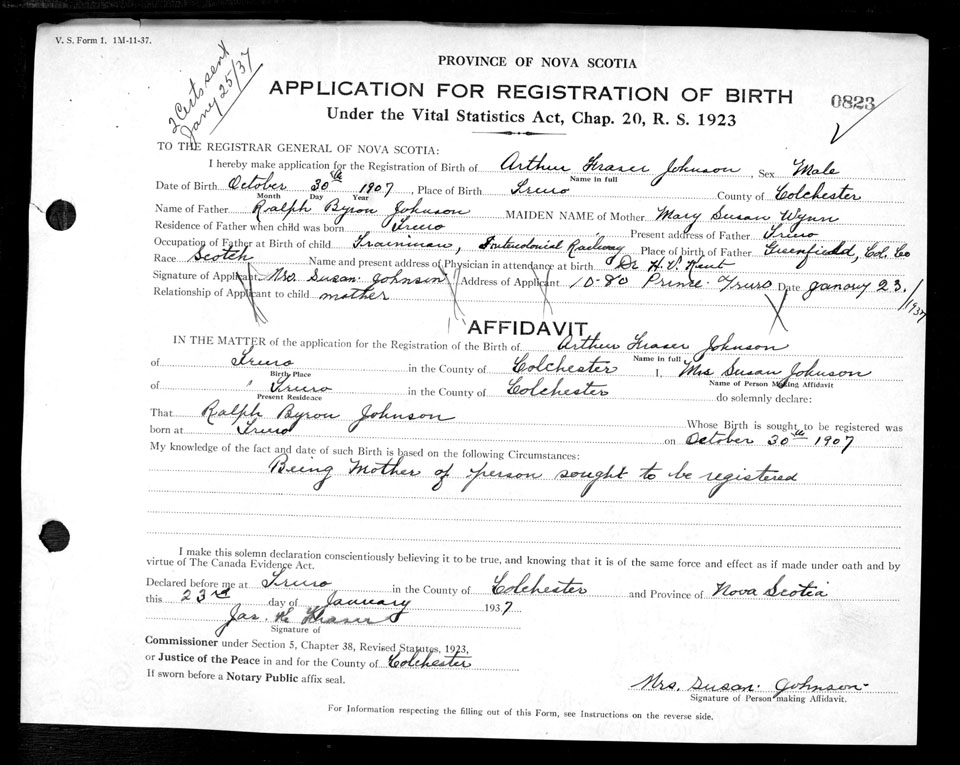 V. S. Form I. 1M-11-37.
2 Certs sent
Jany 25/37
PROVINCE OF NOVA SCOTIA
APPLICATION FOR REGISTRATION OF BIRTH
0823
Under the Vital Statistics Act, Chap. 20, R. S. 1923
TO THE REGISTRAR GENERAL OF NOVA SCOTIA:
I hereby make application for the Registration of Birth of Arthur Fraser Johnson, Sex Male
Name in full
Date of Birth October 30th 1907, Place of Birth Truro County of Colchester
Month Day Year
Name of Father Ralph Byron Johnson MAIDEN NAME of Mother Mary Susan Wynn
Residence of Father when child was born Truro Present address of Father Truro
Occupation of Father at Birth of child Trainman, Intercolonial Railway Place of birth of Father Greenfield, Col. Co
Race Scotch Name and present address of Physician in attendance at birth Dr H. V. Kent
Signature of Applicant Mrs. Susan Johnson Address of Applicant 10-80 Prince Truro Date January 23/1937
Relationship of Applicant to child mother
AFFIDAVIT
IN THE MATTER of the application for the Registration of the Birth of Arthur Fraser Johnson
Name in full
of Truro in the County of Colchester I, Mrs Susan Johnson
Birth Place Name of Person Making Affidavit
of " Truro in the County of Colchester do solemnly declare:
Present Residence
That Ralph Byron Johnson Whose Birth is sought to be registered was
born at Truro on October 30th 1907
My knowledge of the fact and date of such Birth is based on the following Circumstances:
Being Mother of person sought to be registered
I make this solemn declaration conscientiously believing it to be true, and knowing that it is of the same force and effect as if made under oath and by
virtue of The Canada Evidence Act.
Declared before me at Truro in the County of Colchester and Province of Nova Scotia
this 23rd day of January 1937
Jas. Fraser
Signature of
Commissioner under Section 5, Chapter 38, Revised Statutes, 1923,
or Justice of the Peace in and for the County of Colchester
If sworn before a Notary Public affix seal.
Mrs. Susan Johnson
Signature of Person making Affidavit.
For Information respecting the filling out of this Form, see Instructions on the reverse side.